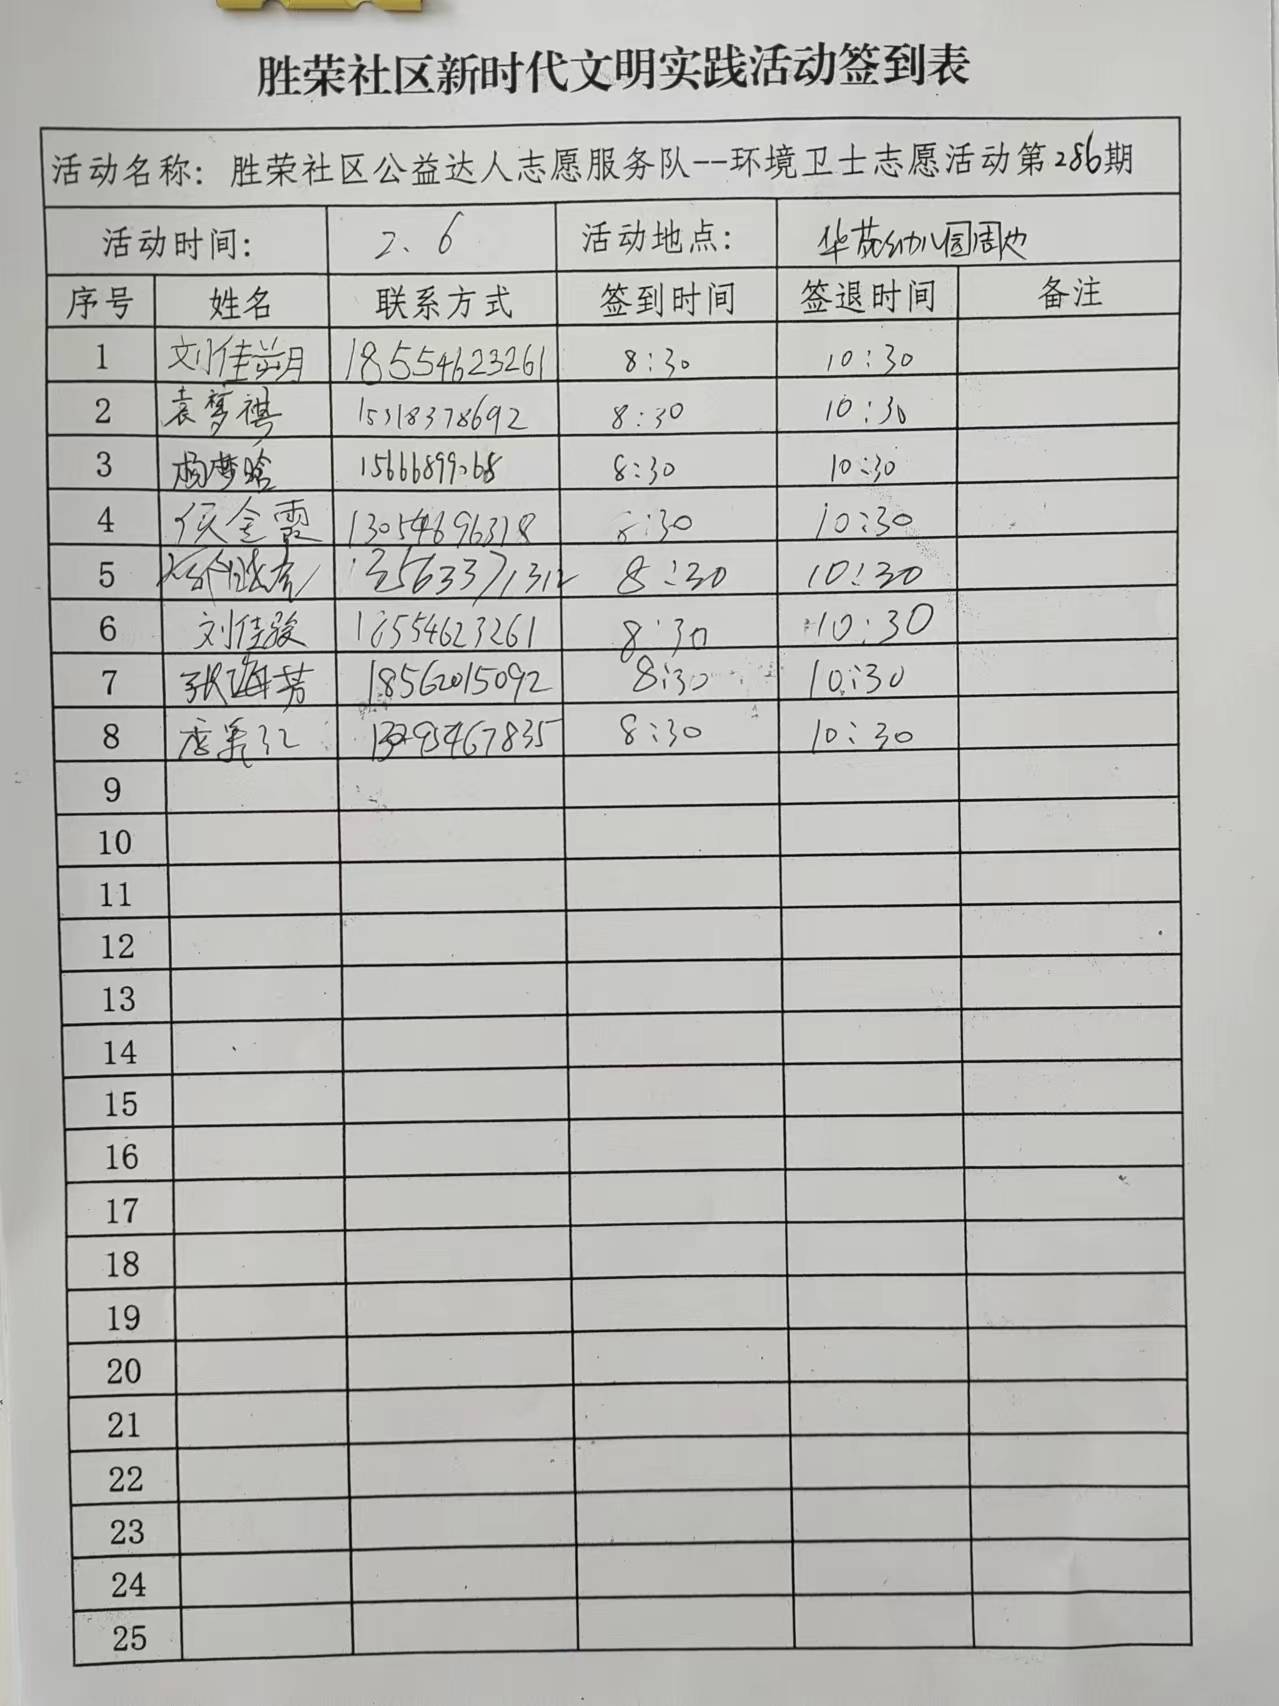 胜荣社区新时代文明实践活动签到表
活动名称：胜荣社区公益达人志愿服务队--环境卫士志愿活动第286期
活动时间： 2、6 活动地点： 华茂幼儿园周边
序号 姓名 联系方式 签到时间 签退时间 备注
1 刘佳玥 18554623261 8:30 10:30
2 袁梦祺 15318378692 8:30 10:30
3 杨梦晗 15666899068 8:30 10:30
4 侯金霞 13054696318 8:30 10:30
5 8:30 10:30
6 刘佳骏 18554623261 8:30 10:30
7 张海芳 18562015092 8:30 10:30
8 8:30 10:30
9
10
11
12
13
14
15
16
17
18
19
20
21
22
23
24
25